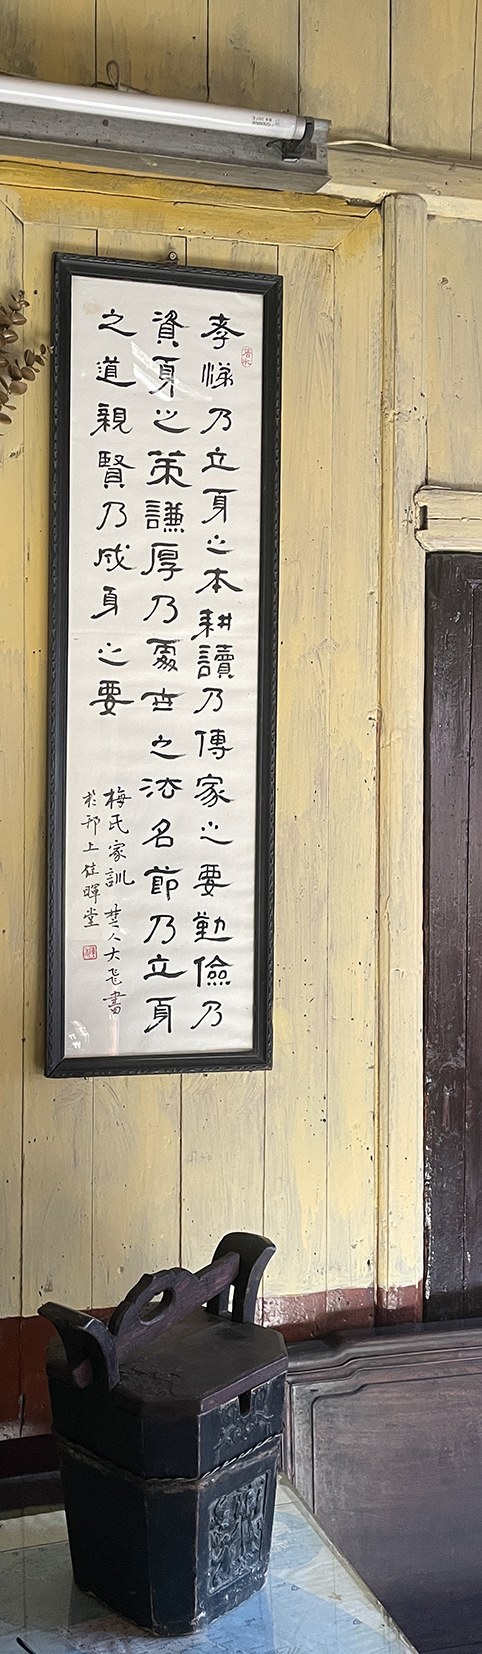 孝悌乃立身之本耕讀乃傳家之要勤儉乃
資身之策謙厚乃處世之法名節乃立身
之道親賢乃成身之要
梅氏家訓 楚人大飛書
於邗上佳暉堂